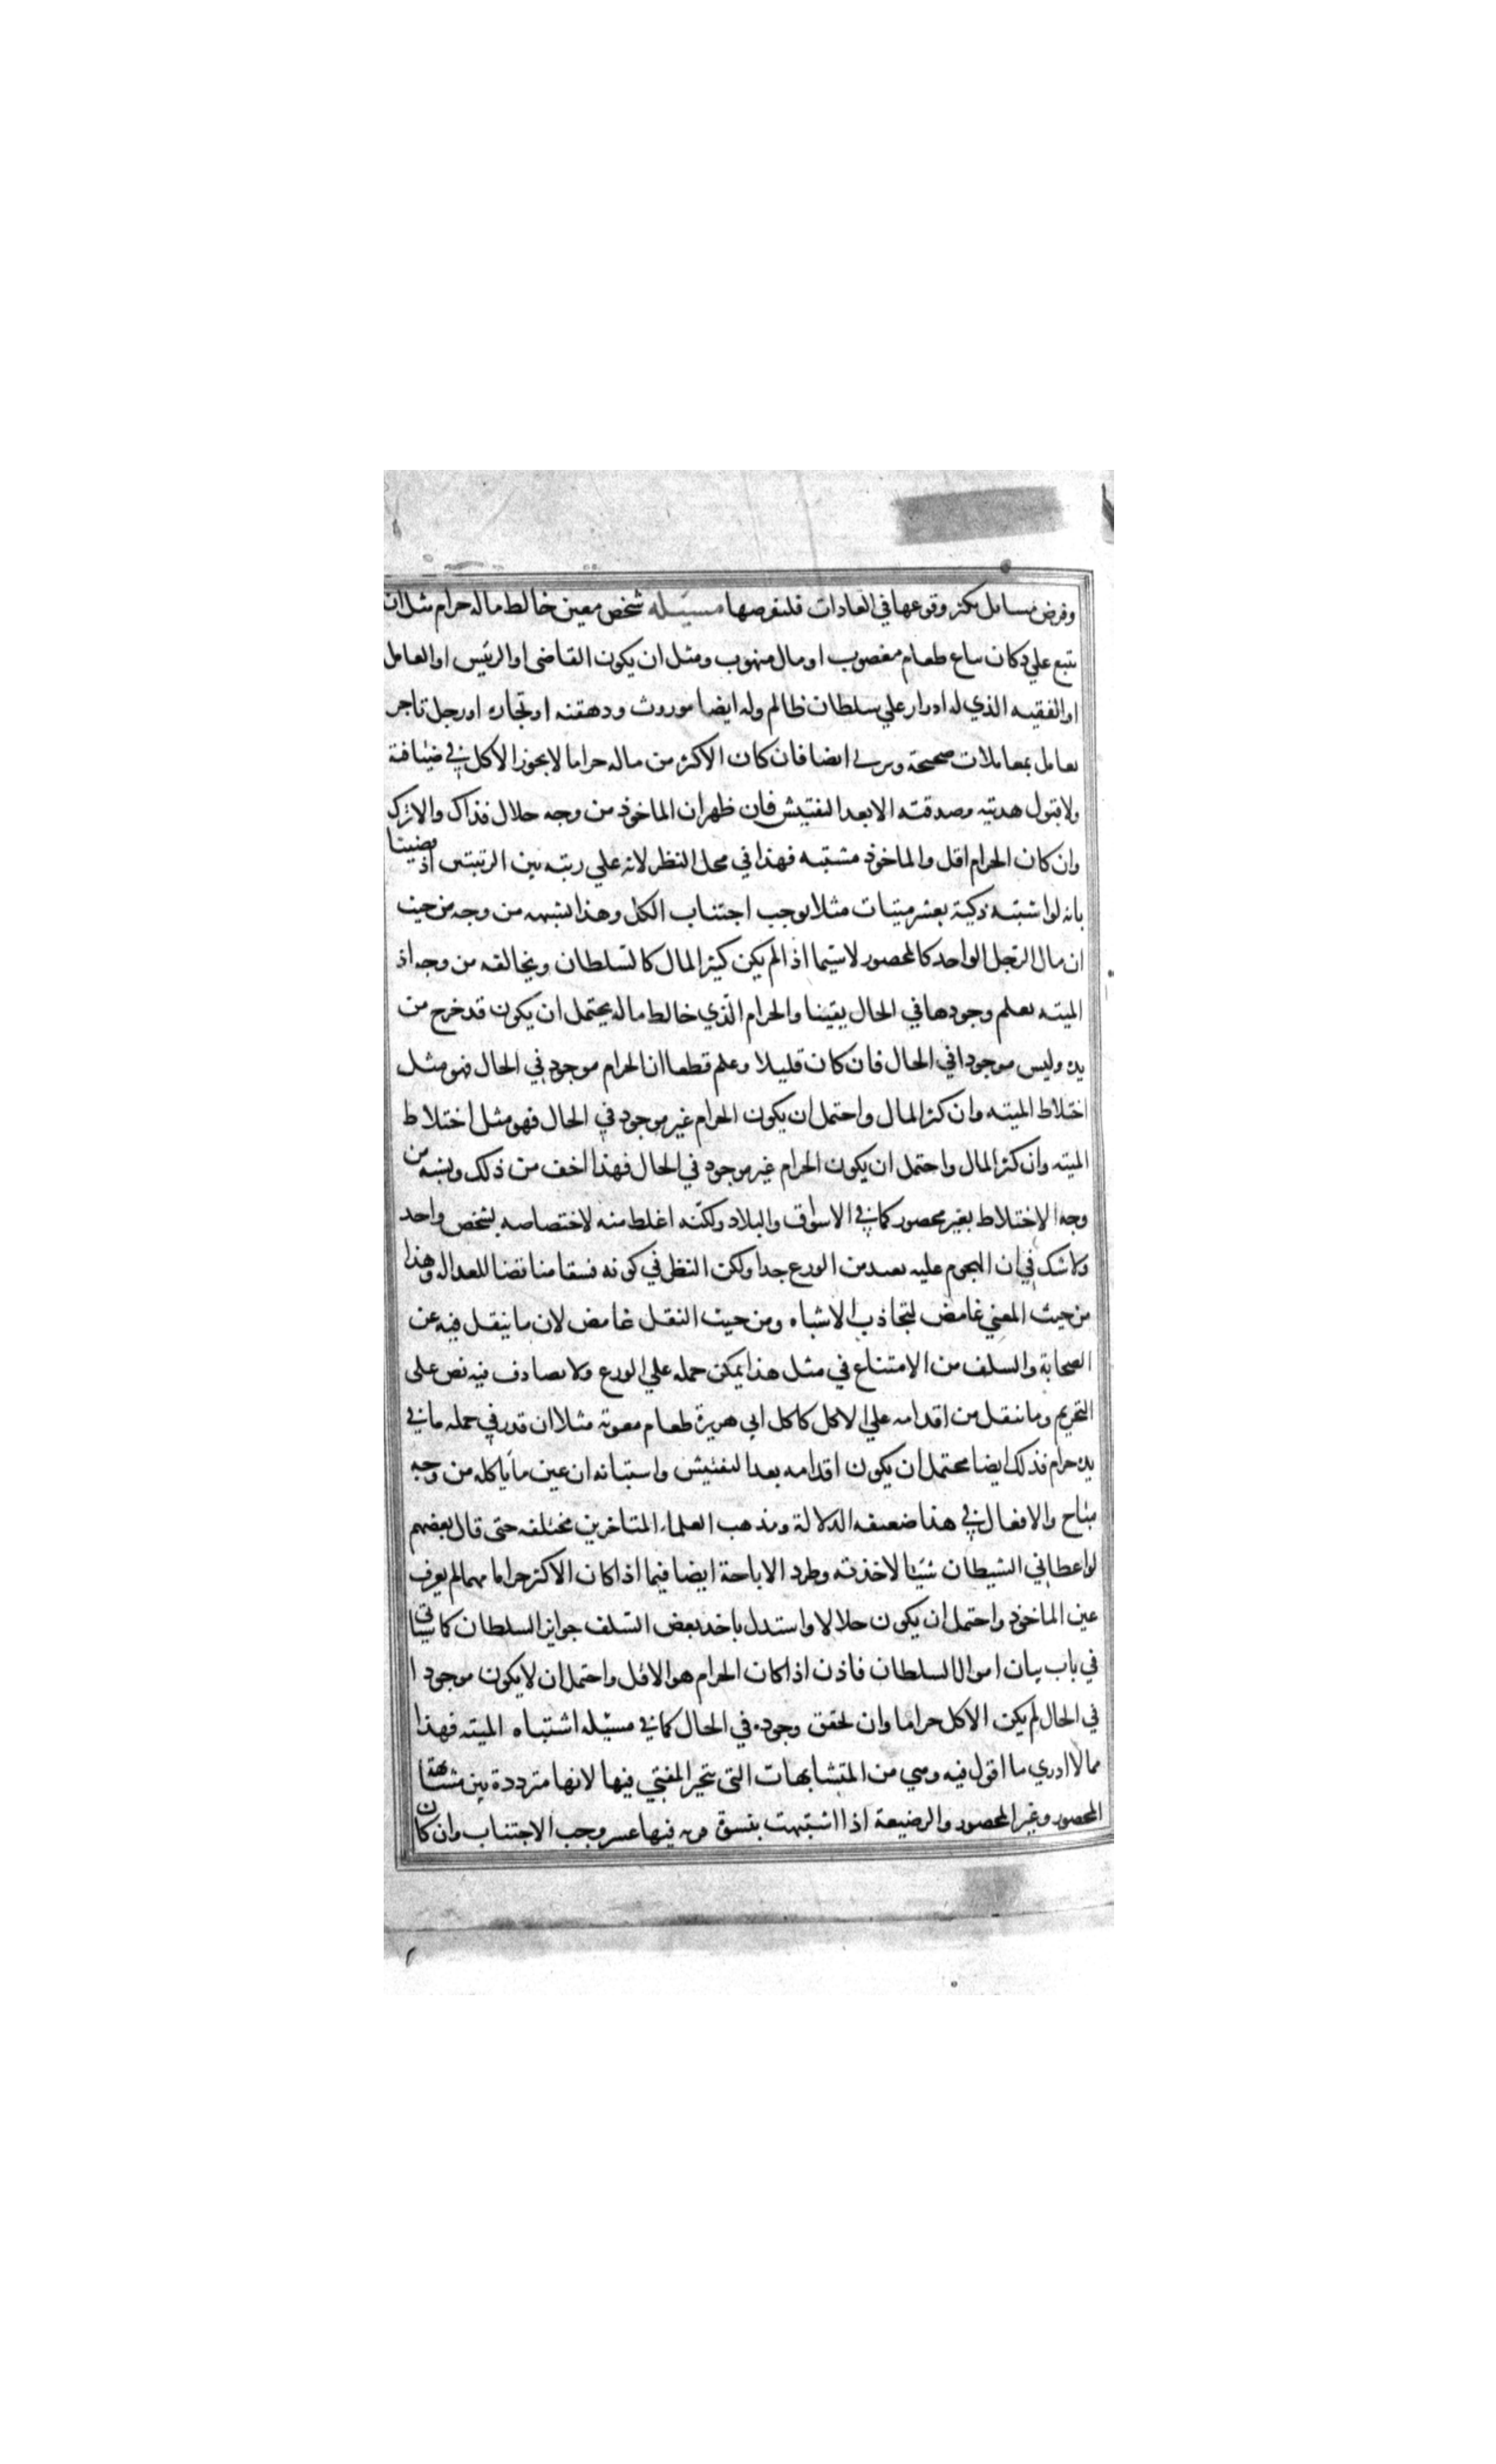 وفرض مسايل يكثر وقوعها في العادات فلنفرضها مسئله شخص معين خالط ماله حرام مثل ان
يتبع علي دكان يباع طعام مغصوب او مال منهوب ومثل ان يكون القاضي او الرئيس او العامل
او الفقيه الذي له ادرار علي سلطان ظالم وله ايضا موروث ودهقنه او تجاره او رجل تاجر
يعامل بمعاملات صحيحة ويربي ايضا فان كان الاكثر من ماله حراما لا يجوز الاكل في ضيافة
ولا قبول هديته وصدقته الا بعد التفتيش فان ظهر ان الماخوذ من وجه حلال فذاك والا ترك
وان كان الحرام اقل والماخوذ مشتبه فهذا في محل النظر لانه علي رتبه بين الرتبتين اذ قضينا
بانه لو اشتبه ذكية بعشر ميتات مثلا يوجب اجتناب الكل وهذا يشبهه من وجه من حيث
ان مال الرجل الواحد كالمحصور لا سيما اذا لم يكن كثير المال كالسلطان ويخالفه من وجه اذ
الميته يعلم وجودها في الحال يقينا والحرام الذي خالط ماله يحتمل ان يكون قد خرج من
يده وليس موجودا في الحال فان كان قليلا وعلم قطعا ان الحرام موجود في الحال فهو مثل
اختلاط الميته وان كثر المال واحتمل ان يكون الحرام غير موجود في الحال فهو مثل اختلاط
الميته وان كثر المال واحتمل ان يكون الحرام غير موجود في الحال فهذا اخف من ذلك ويشبه من
وجه الاختلاط بغير محصور كما في الاسواق والبلاد ولكنه اغلظ منه لاختصاصه بشخص واحد
ولا شك في ان الهجوم عليه بعيد من الورع جدا ولكن النظر في كونه فسقا مناقضا للعداله وهذا
من حيث المعني غامض لتجاذب الاشباه ومن حيث النقل غامض لان ما ينقل فيه عن
الصحابة والسلف من الامتناع في مثل هذا يمكن حمله علي الورع ولا يصادف فيه نص علي
التحريم وما ينقل من اقدامه علي الاكل كاكل ابي هريرة طعام معوية مثلا ان قدر في حمله ما في
يده حرام فذلك ايضا محتمل ان يكون اقدامه بعد التفتيش واستبانه ان عين ما ياكله من وجه
مباح والافعال في هذا ضعيفه الدلالة ومذهب العلماء المتاخرين مختلفه حتي قال بعضهم
لو اعطاني الشيطان شيئا لاخذته وطرد الاباحة ايضا فيما اذا كان الاكثر حراما مهما لم يعرف
عين الماخوذ واحتمل ان يكون حلالا واستدل باخذ بعض السلف جوايز السلطان كما سياتي
في باب بيان اموال السلطان فاذن اذا كان الحرام هو الاقل واحتمل ان لا يكون موجودا
في الحال لم يكن الاكل حراما وان تحقق وجوده في الحال كما في مسئله اشتباه الميته فهذا
مما لا ادري ما اقول فيه وهي من المتشابهات التي يتحير المفتي فيها لانها مترددة بين مشابهة
المحصور وغير المحصور والرضيعة اذا اشتبهت بنسوة قريه فيها عسر وجب الاجتناب وان كان